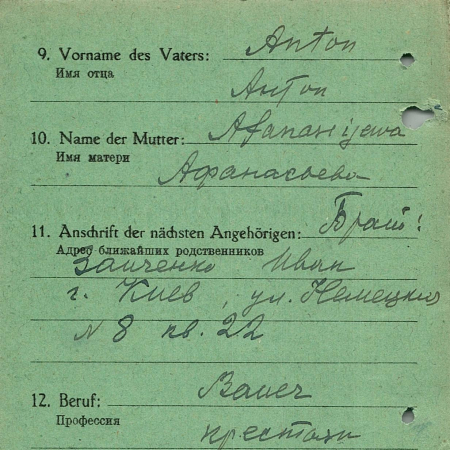 9. Vorname des Vaters: Anton
Имя отца
Антон
10. Name der Mutter: Afanasijewa
Имя матери
Афанасьево
11. Anschrift der nächsten Angehörigen: Брат:
Адрес ближайших родственников
Заиченко Иван
г. Киев, ул. Немецкая
N 8 кв. 22
12. Beruf: Bauer
Профессия